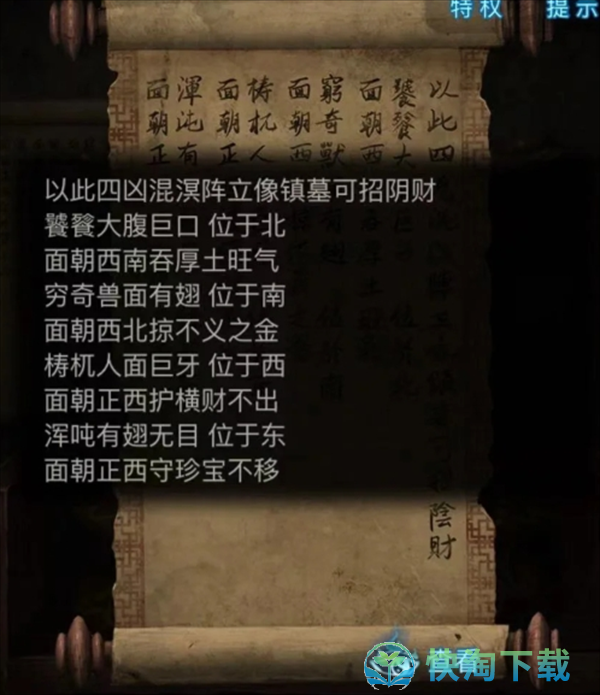 特权 提示
以此四凶混溟阵立像镇墓可招阴财
饕餮大腹巨口 位于北
面朝西南吞厚土旺气
穷奇兽面有翅 位于南
面朝西北掠不义之金
梼杌人面巨牙 位于西
面朝正西护横财不出
浑吨有翅无目 位于东
面朝正西守珍宝不移
以此四
陰財
饕餮大
面朝西
窮奇獸
面朝西
梼杌人
面朝正
渾沌有
面朝正
查看
快淘下载